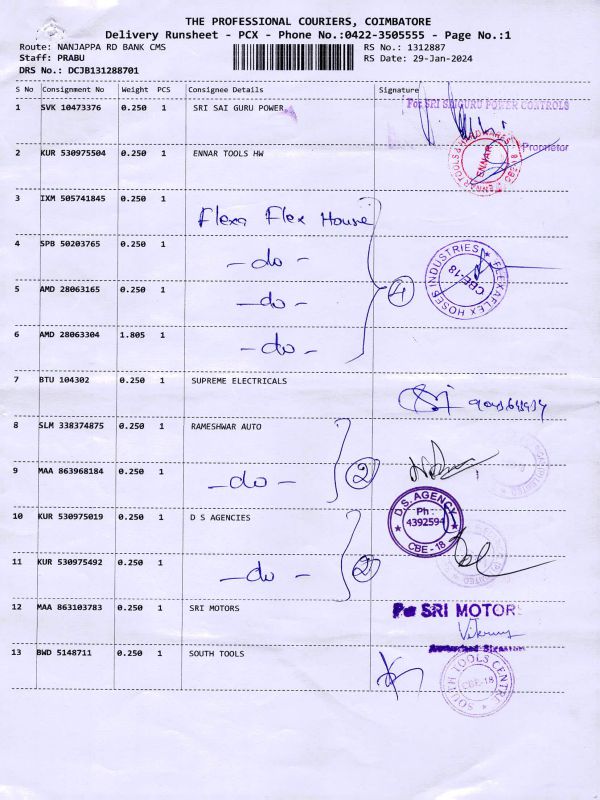 THE PROFESSIONAL COURIERS, COIMBATORE
Delivery Runsheet - PCX - Phone No.:0422-3505555 - Page No.:1
Route: NANJAPPA RD BANK CMS RS No.: 1312887
Staff: PRABU RS Date: 29-Jan-2024
DRS No.: DCJB131288701
S No Consignment No Weight PCS Consignee Details Signature
1 SVK 10473376 0.250 1 SRI SAI GURU POWER
For SRI SAIGURU POWER CONTROLS
Proprietor
2 KUR 530975504 0.250 1 ENNAR TOOLS HW
ENNAR
3 IXM 505741845 0.250 1
Flexa Flex House
4 SPB 50203765 0.250 1
- do -
FLEXAFLEX HOSES INDUSTRIES
CBE-18
5 AMD 28063165 0.250 1
- do -
4
6 AMD 28063304 1.805 1
- do -
7 BTU 104302 0.250 1 SUPREME ELECTRICALS
8 SLM 338374875 0.250 1 RAMESHWAR AUTO
9 MAA 863968184 0.250 1
- do -
2
10 KUR 530975019 0.250 1 D S AGENCIES
D.S. AGENCY
Ph :
4392594
CBE - 18
11 KUR 530975492 0.250 1
- do -
2
12 MAA 863103783 0.250 1 SRI MOTORS
For SRI MOTORS
13 BWD 5148711 0.250 1 SOUTH TOOLS
SOUTH TOOLS CENTRE
CBE-18